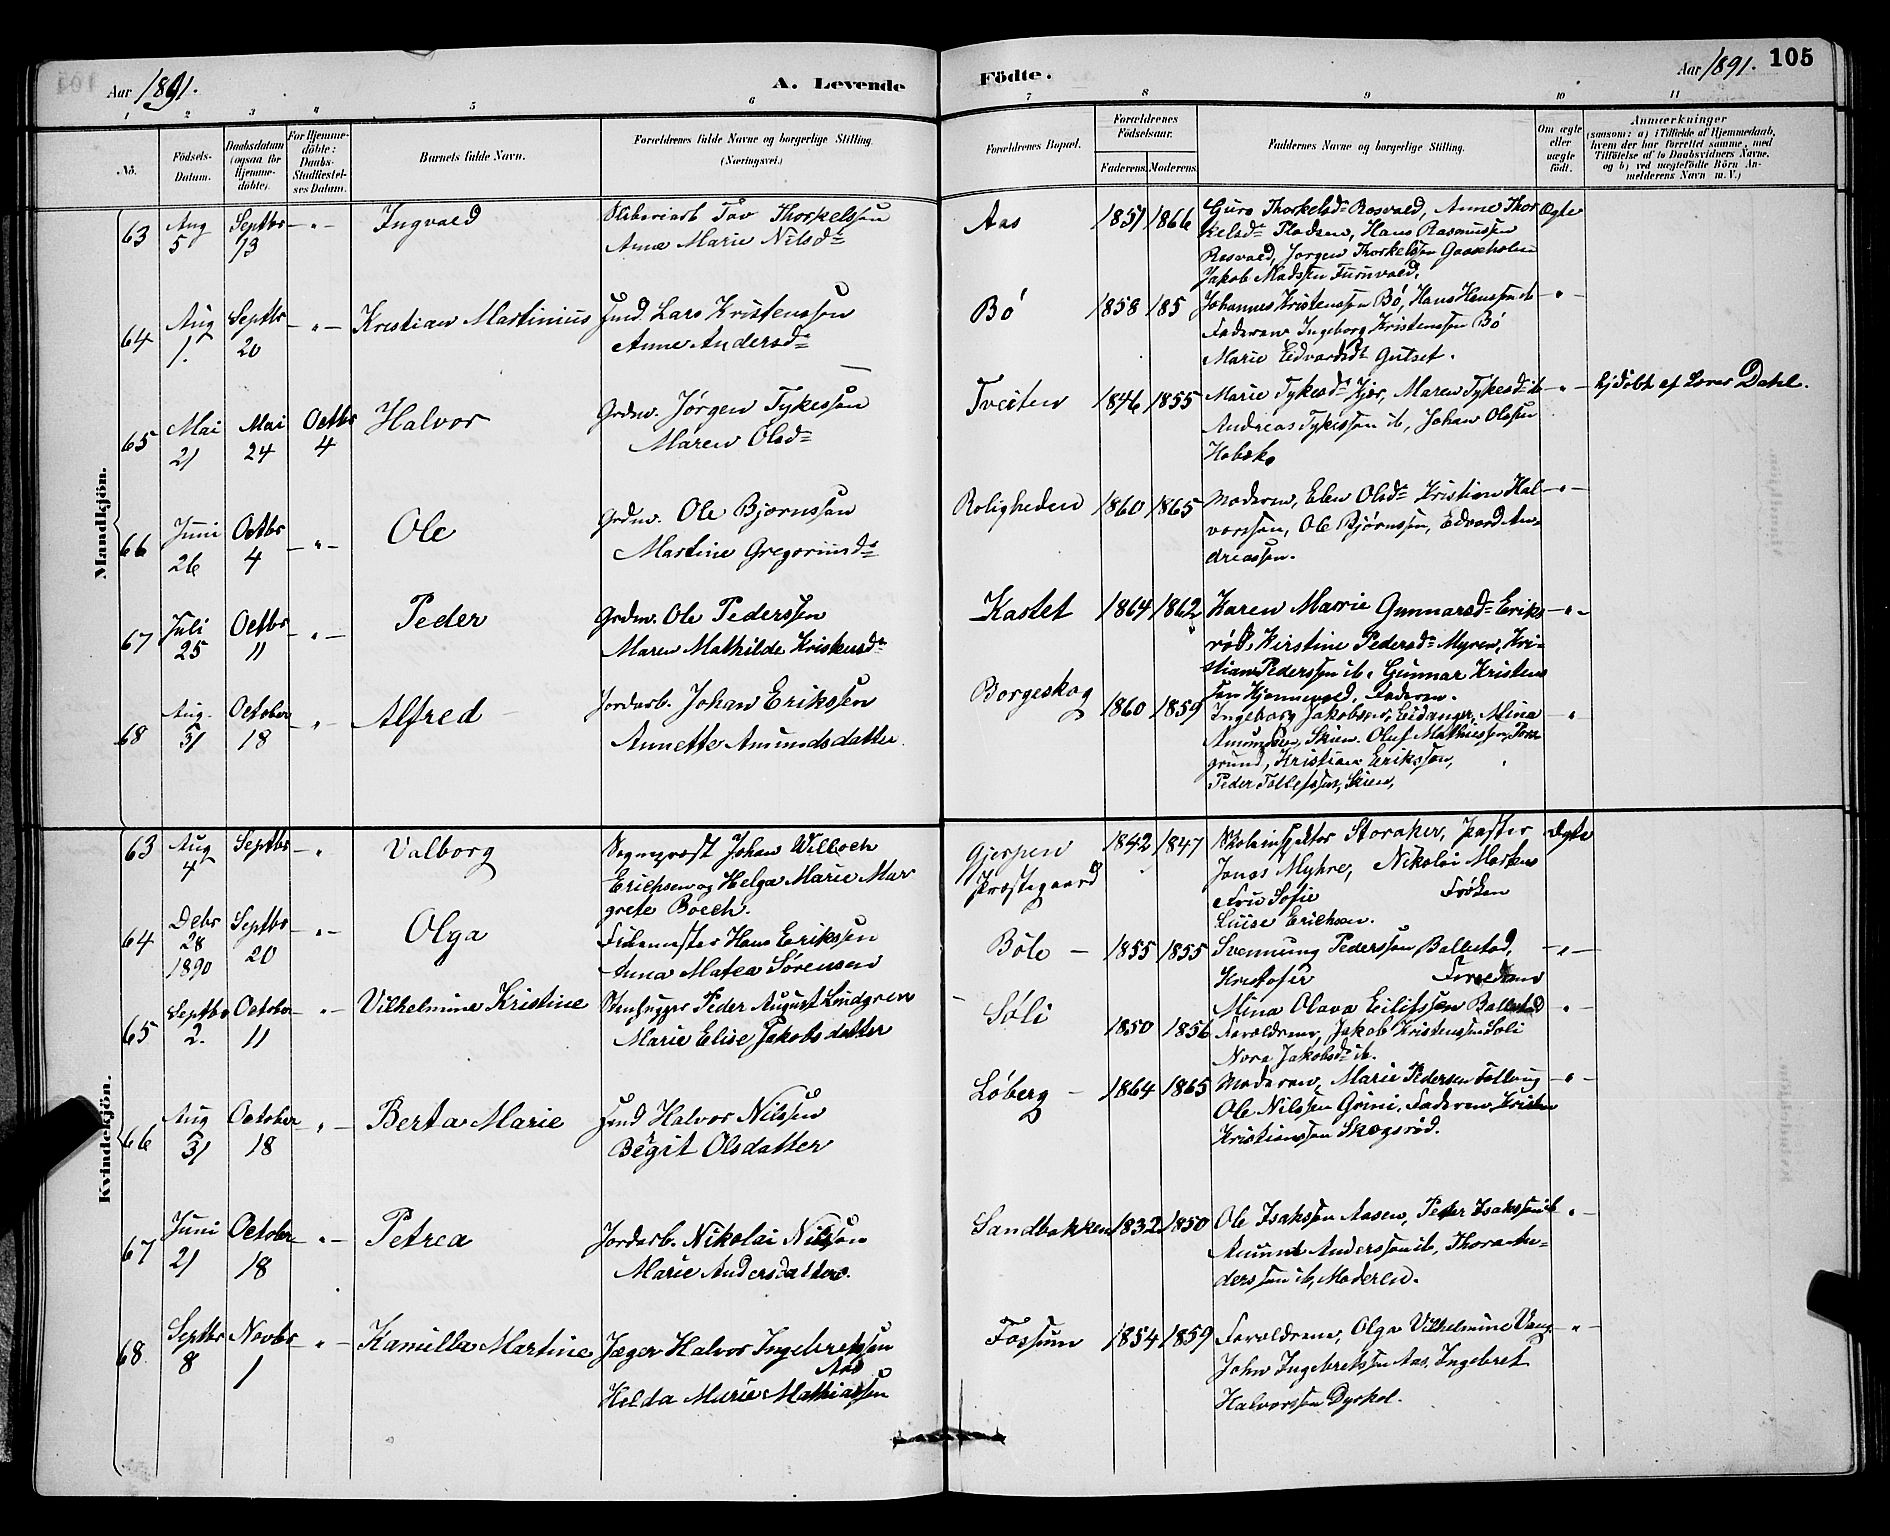 Aar 1891. A. Levende Födte. Aar 1891. 105
1 2 3 4 5 6 7 8 9 10 11
No. Födsels-Datum. Daabsdatum (ogsaa for Hjemme-döbte). For Hjemme-döbte: Daabs-Stadfæstel-ses Datum. Barnets fulde Navn. Forældrenes fulde Navne og borgerlige Stilling. (Næringsvei.) Forældrenes Bopæl. Forældrenes Födselsaar. Faderens Moderens Faddernes Navne og borgerlige Stilling. Om ægte eller uægte födt. Anmærkninger
(saasom: a) i Tilfælde af Hjemmedaab,
hvem der har forrettet samme, med
Tilföielse af to Daabsvidners Navne,
og b) ved uægtefödte Börn An-
melderens Navn m. V.)
Mandkjön.
63 Aug 5 Septbr 13 -"- Ingvald
Tov Thorkelssen
Anne Marie Nilsd=
Aas 1851 1866
Guro Thorkelsd= Rosvald, Anne Thor
kelsd= Pladsen, Hans Rasmussen
Rosvald, Jørgen Thorkelssen Gaaseholm
Jakob Madssen Furuvald.
Ægte
64 Aug 1. Septbr 20 -"- Kristian Martinius
Inds. Lars Kristenssen
Anne Andersd=
Bö 1858 185
Johannes Kristenssen Bö, Hans Hanssen ib
Faderen, Ingeborg Kristenssen Bö
Marie Edvardsdt Gulset.
-"-
65 Mai 21 Mai 24 Octbr 4 Halvor
Grdm. Jørgen Tykessen
Maren Olsd=
Tveiten 1846 1855
Marie Tykesd= Kjær, Maren Tykesd= ib
Andreas Tykessen ib, Johan Olssen
Hobæk.
-"- hjdöbt af Lærer Dahl.
66 Juni 26 Octbr 4 -"- Ole
Grdm. Ole Bjørnssen
Martine Gregoriusd=
Roligheden 1860 1865
Moderen, Elen Olsd= Kristian Hal
vorssen, Ole Bjørnssen, Edvard An-
dreassen.
-"-
67 Juli 25 Octbr 11 -"- Peder
Grdm. Ole Pederssen
Maren Mathilde Kristensd=
Kastet 1864 1862
Karen Marie Gunnarsd= Eriks
röd, Kirstine Pedersd= Myren, Kri-
stian Pederssen ib. Gunnar Kristens
sen Hjemmevald, Faderen.
-"-
68 Aug. 31 October 18 " Alfred
Jordarb. Johan Erikssen
Annette Amundsdatter.
Borgeskog 1860 1859
Ingeborg Jakobsen, Eidanger, Mina
Amundsen, Skien. Oluf Mathiessen, Pors
grund, Kristian Erikssen,
Peder Tollefssen, Skien,
-"
Kvindekjön.
63 Aug 4 Septbr " Valborg
Sogneprest Johan Willoch
Erichsen og Helga Marie Mar
grete Boeck.
Gjerpen
Præstegaard
1842 1847
Skoleinspektör Storaker, Pastor
Jonas Myhre, Nikolai Morten
Fru Sofie Fröken
Luise Erichsen.
Ægte
64 Debr 28 1890 Septbr 20 -"- Olga
Hans Erikssen
Anna Matea Sørensen
Böle 1855 1855
Svennung Pederssen Ballestad,
Kristofer Foreldrene
Mina Olava Eilifssen Ballestad
-"-
65 Septbr 2. October 11 -"- Vilhelmine Kristine
Stenhugger Peder August Lindgren
Marie Elise Jakobsdatter
Söli 1850 1856
Foreldrene, Jakob Kristenssen Söli
Nora Jakobsd= ib.
-"-
66 Aug 31 October 18 -"- Berta Marie
Inds Halvor Nilssen
Bergit Olsdatter
Löberg 1864 1865
Moderen, Marie Pedersen Follaug
Ole Nilssen Grini, Faderen, Kristen
Kristianssen Skogsröd.
-"-
67 Juni 21 October 18 -"- Petrea
Jordarb. Nikolai Nilssen
Marie Andersdatter.
Sandbakken 1832 1850
Ole Isakssen Aasen, Peder Isakssen ib
Amund Anderssen ib, Thora An-
derssen ib, Moderen.
-"-
68. Septbr 8 Novbr 1 "- Kamilla Martine
Jæger Halvor Ingebretssen
Aas
Helda Marie Mathiassen
Fossum 1854 1859
Foreldrene, Olga Vilhelmine Vang
John Ingebretssen Aas, Ingebret
Halvorssen Dyrkol.
-"-